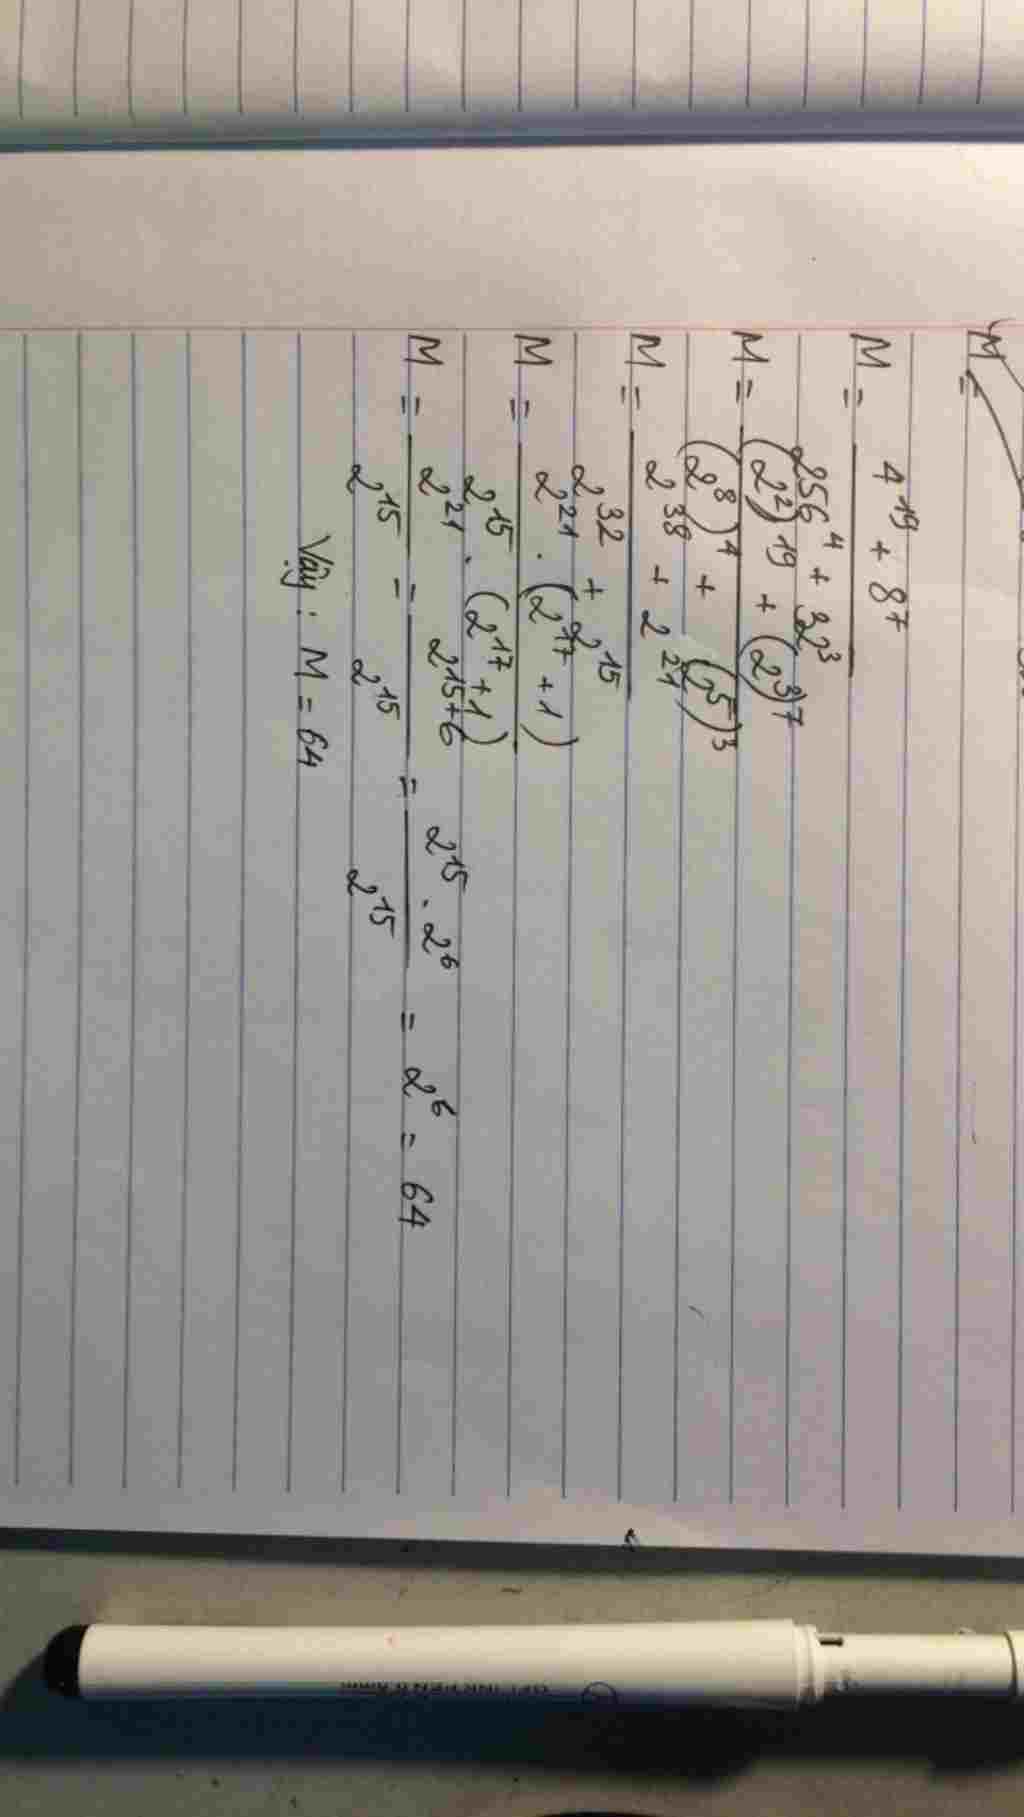 M =
M = \frac{4^{19} + 8^7}{256^4 + 32^3}
M = \frac{(2^2)^{19} + (2^3)^7}{(2^8)^4 + (2^5)^3}
M = \frac{2^{38} + 2^{21}}{2^{32} + 2^{15}}
M = \frac{2^{21} . (2^{17} + 1)}{2^{15} . (2^{17} + 1)}
M = \frac{2^{21}}{2^{15}} = \frac{2^{15+6}}{2^{15}} = \frac{2^{15} . 2^6}{2^{15}} = 2^6 = 64
Vậy : M = 64